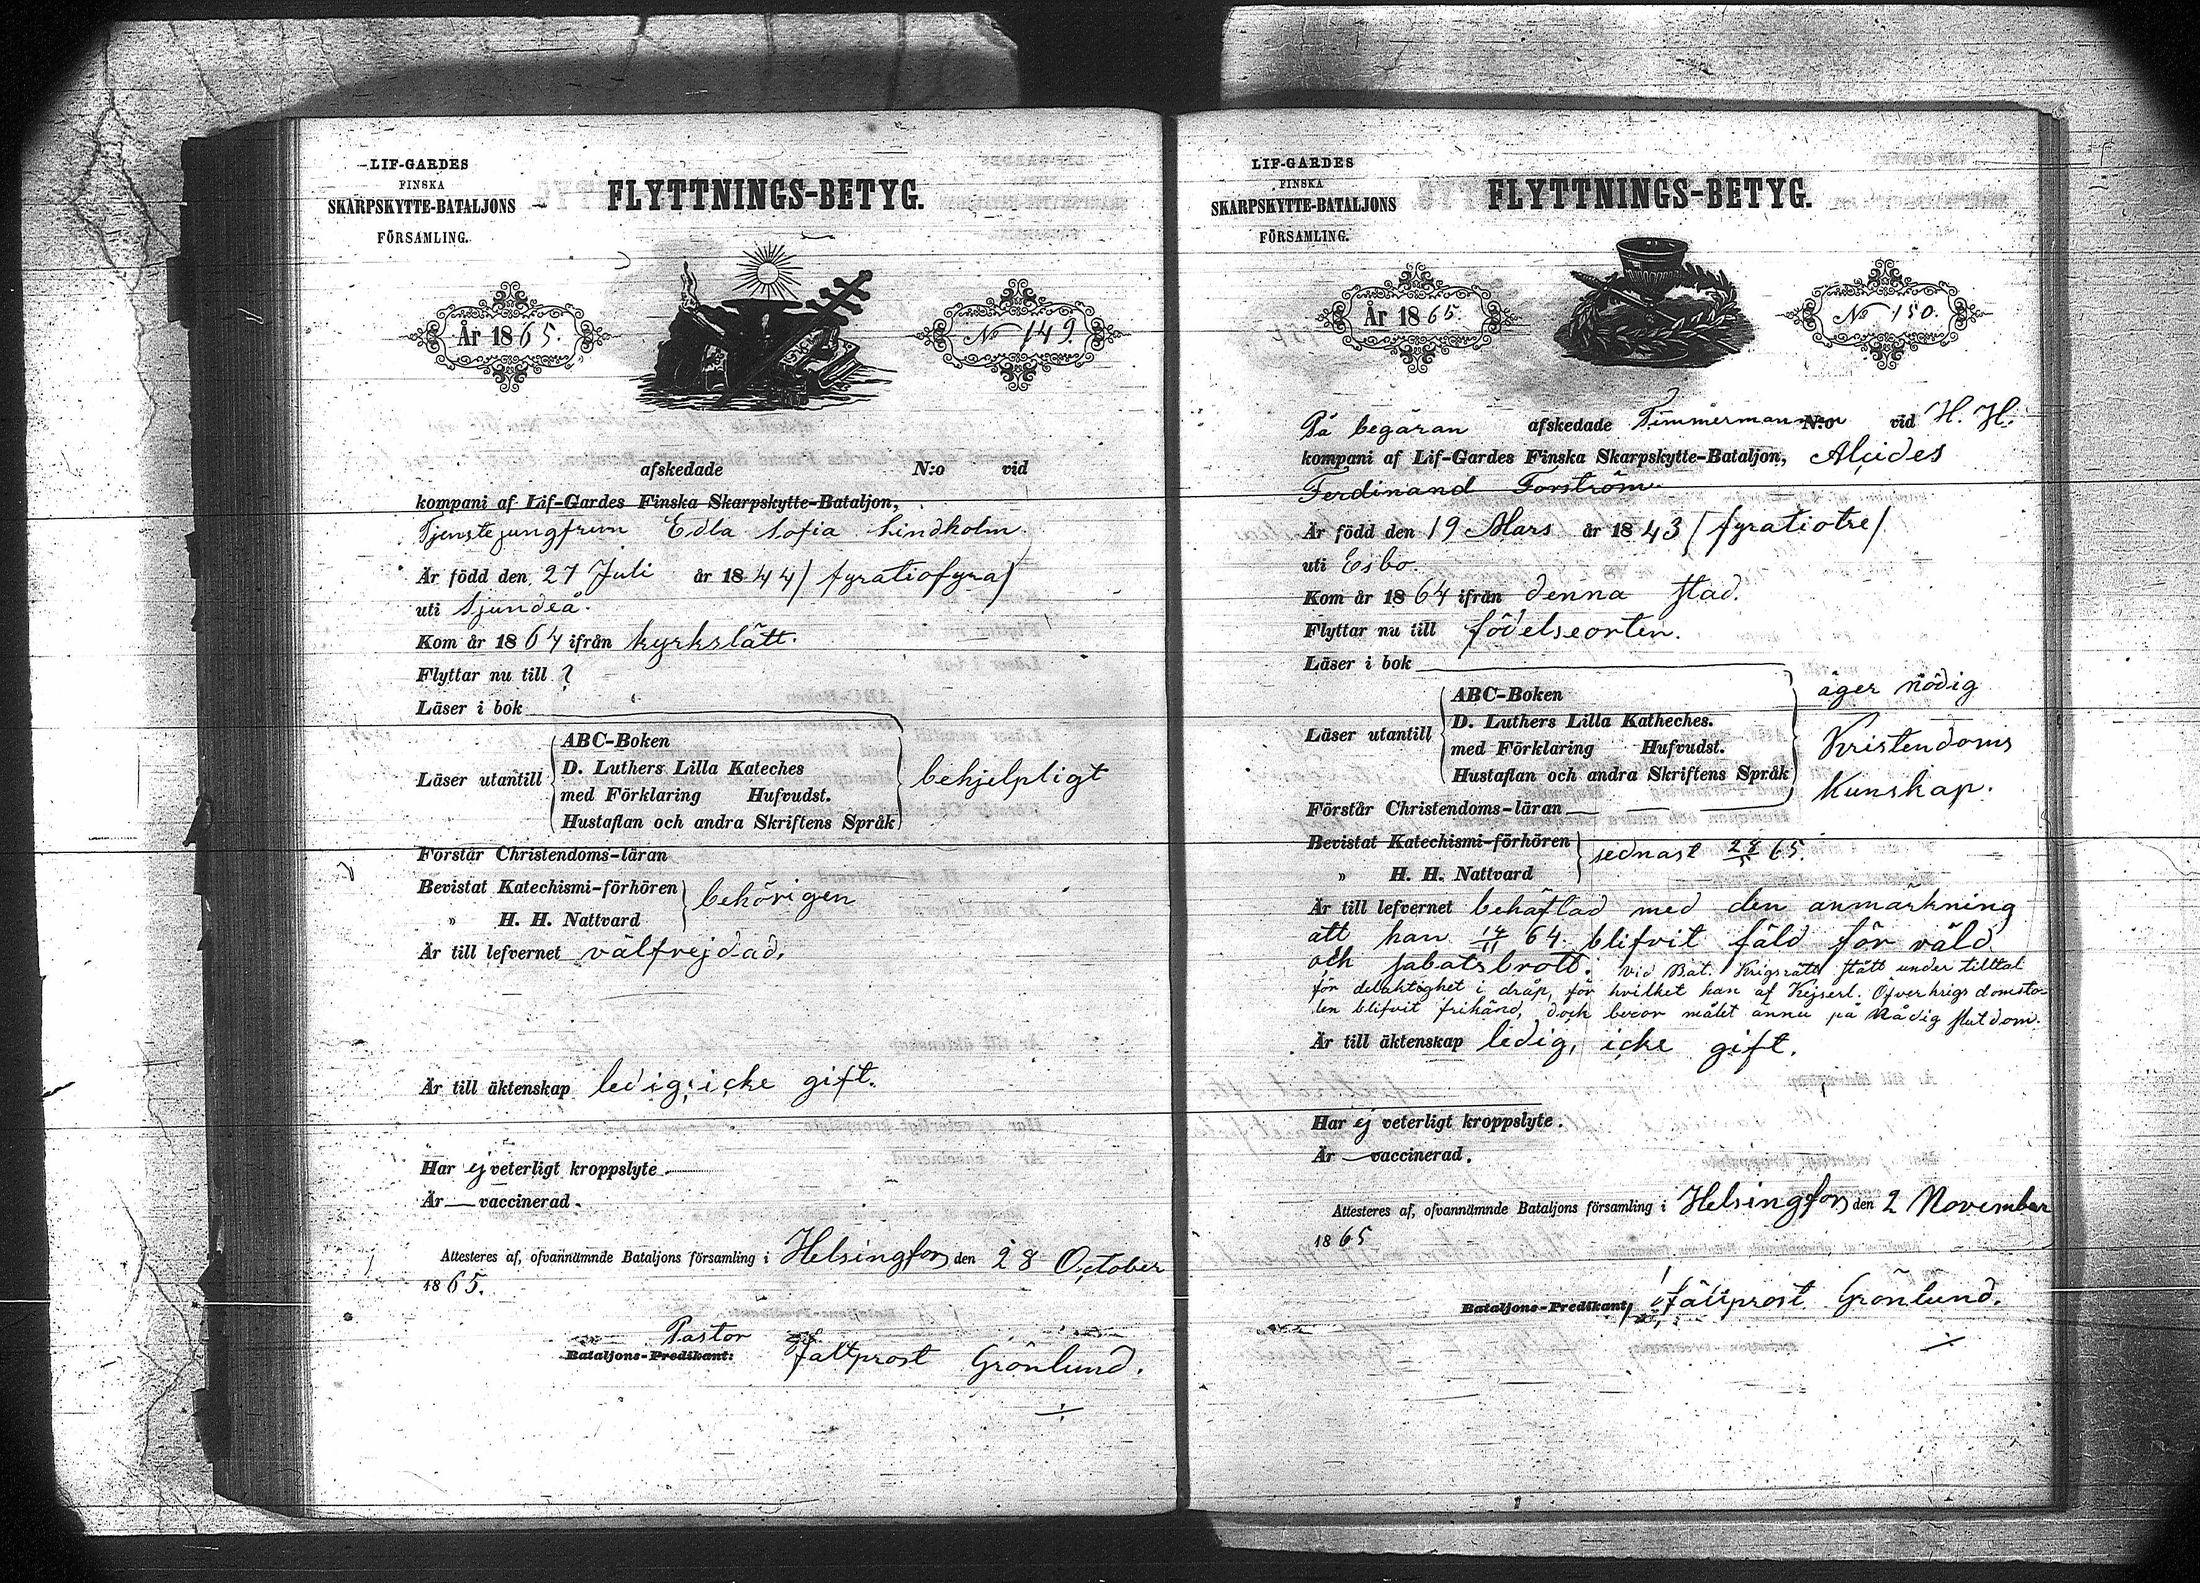 LIF-GARDES
FINSKA
SKARPSKYTTE-BATALJONS
FÖRSAMLING.
FLYTTNINGS-BETYG.
År 1865.
No 149.
afskedade N:o vid
kompani af Lif-Gardes Finska Skarpskytte-Bataljon,
Tjenstejungfrun Edla Sofia Lindholm
Är född den 27 Juli år 1844 / fyratiofyra /
uti Sjundeå.
Kom år 1864 ifrån Kyrkslätt.
Flyttar nu till ?
Läser i bok
Läser utantill
ABC-Boken
D. Luthers Lilla Kateches
med Förklaring Hufvudst.
Hustaflan och andra Skriftens Språk
behjelpligt
Förstår Christendoms-läran
Bevistat Katechismi-förhören
" H. H. Nattvard
behörigen
Är till lefvernet välfrejdad.
Är till äktenskap ledig, icke gift.
Har ej veterligt kroppslyte
Är — vaccinerad.
Attesteres af, ofvannämnde Bataljons församling i Helsingfors den 28 October
1865.
Pastor
Bataljons-Predikant: Fältprost Grönlund.
LIF-GARDES
FINSKA
SKARPSKYTTE-BATALJONS
FÖRSAMLING.
FLYTTNINGS-BETYG.
År 1865.
No 150.
På begäran afskedade Timmermannen N:o vid H. H.
kompani af Lif-Gardes Finska Skarpskytte-Bataljon, Alcides
Ferdinand Forström
Är född den 19 Mars år 1843 / fyratiotre /
uti Esbo.
Kom år 1864 ifrån denna stad.
Flyttar nu till födelseorten.
Läser i bok
Läser utantill
ABC-Boken
D. Luthers Lilla Katheches.
med Förklaring Hufvudst.
Hustaflan och andra Skriftens Språk
Förstår Christendoms-läran —
äger nödig
Kristendoms
Kunskap.
Bevistat Katechismi-förhören
" H. H. Nattvard
sednast 28/5 65.
Är till lefvernet behäftad med den anmärkning
att han 14/11 64 blifvit fäld för våld
och sabatsbrott. Vid Bat. Krigsrätt stått under tilltal
för delaktighet i dråp, för hvilket han af Kejserl. Öfverkrigsdomsto-
len blifvit frikänd, dock beror målet ännu på Nådig slutdom.
Är till äktenskap ledig, icke gift.
Har ej veterligt kroppslyte.
Är — vaccinerad.
Attesteres af, ofvannämnde Bataljons församling i Helsingfors den 2 November
1865
Bataljons-Predikant, Fältprost Grönlund.